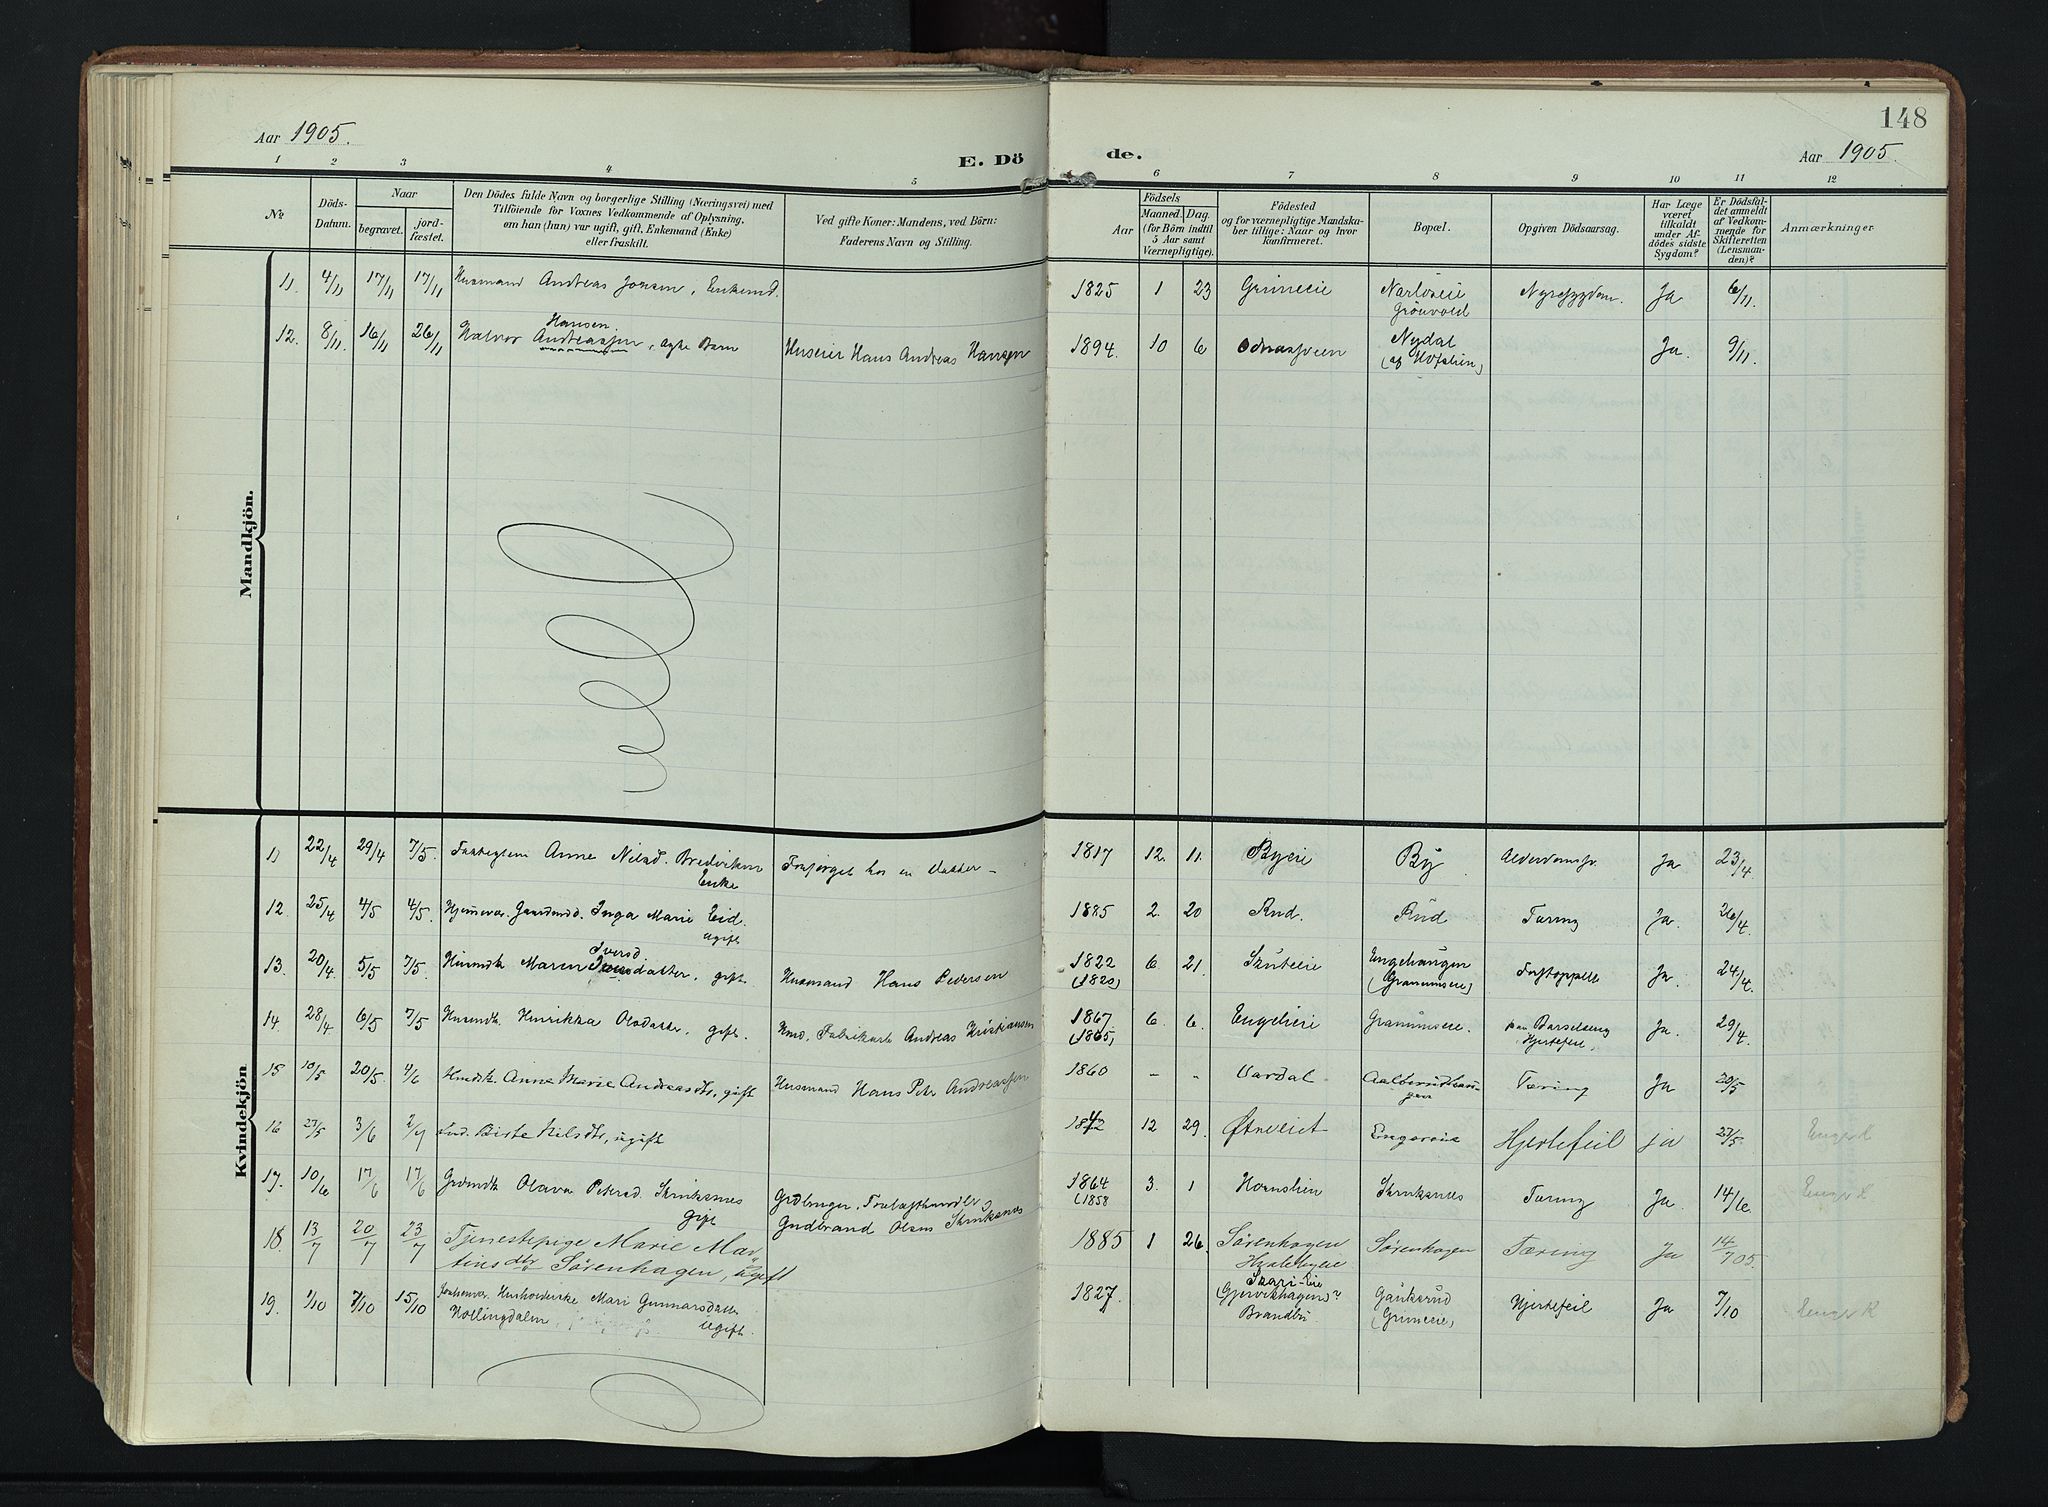 148
Aar 1905.
E. Dö
de.
Aar 1905.
1 2 3 4 5 6 7 8 9 10 11 12
№
Döds-
Datum.
Naar
begravet.
jord-
fæstet.
Den Dödes fulde Navn og borgerlige Stilling (Næringsvei) med
Tilföiende for Voxnes Vedkommende af Oplysning,
om han (hun) var ugift, gift, Enkemand (Enke)
eller fraskilt.
Ved gifte Koner: Mandens, ved Börn:
Faderens Navn og Stilling.
Födsels
Aar
Maaned. Dag.
(for Börn indtil
5 Aar samt
Værnepligtige).
Födested
og for værnepligtige Mandska-
ber tillige: Naar og hvor
konfirmeret.
Bopæl.
Opgiven Dödsaarsag.
Har Læge
været
tilkaldt
under Af-
dödes sidste
Sygdom?
Er Dödsfal-
det anmeldt
af Vedkom-
mende for
Skifteretten
(Lensman-
den)?
Anmærkninger
Mandkjön.
11. 4/11 17/11 17/11 Husmand Andreas Jonsen, Enkemd. 1825 1 23 Grimeie Narloseie Nyresygdom. Ja 6/11.
Grönvold
Hansen.
12. 8/11. 16/11 26/11 Halvor Andreassen, ægte Barn Huseier Hans Andreas Hansen 1894. 10 6 Odnæsveien Nydal Ja. 9/11.
(af Hofslien)
Kvindekjön
11 22/4 29/4 7/5. Anne Nilsd. Bredviken Forsørget hos en datter - 1817 12. 11. Byeie By Alderdomssv. Ja 23/4.
Enke
12. 25/4 4/5 4/5. Inga Marie Eid. 1885 2. 20 Rud. Rud Tæring Ja. 26/4.
ugift
Iversd.
13. 20/4. 5/5 7/5. Maren datter, gift. Husmand Hans Pedersen 1822 6 21. Skuteeie Engehaugen Ja. 24/4.
(1820) (Granumseie)
14. 28/4 6/5 7/5 Husmdk. Henrikka Olsdatter, gift. Hmd. Fabrikarb. Andreas Kristiansen 1867 6. 6. Engeleie Granumseie. Barselseng Ja. 29/4.
(1865) Hjertefeil,
15 10/5 20/5. 4/6 Anne Marie Andreasdtr, gift Husmand Hans Petr Andreassen 1860 - - Vardal Tæring Ja 20/5
16 27/5 3/6 2/7 Birte Nilsdtr, ugift 1842 12 29. Hjertefeil ja 27/5. Enger K
17. 10/6 17/6 17/6 Grdmdk. Olava Petersd. Skrukenes 1864 3. 1 Hornslien Skrukenes Tæring Ja. 14/6. Enger K
gift Gudbrand Olsen Skrukenes (1858
18. 13/7 20/7 23/7 Tjenestepige Marie Mar- 1885 1 26. Sørenhagen Sørenhagen Tæring Ja 14/705.
tinsdtr Sørenhagen, ugift
19. 1/10 7/10 15/10 Husholderske Mari Gunnarsdatter 1827. Skari-Eie Hjertefeil Ja 7/10 Enger K
Hollingdalen, ugift. Brandbu (Grimeeie)